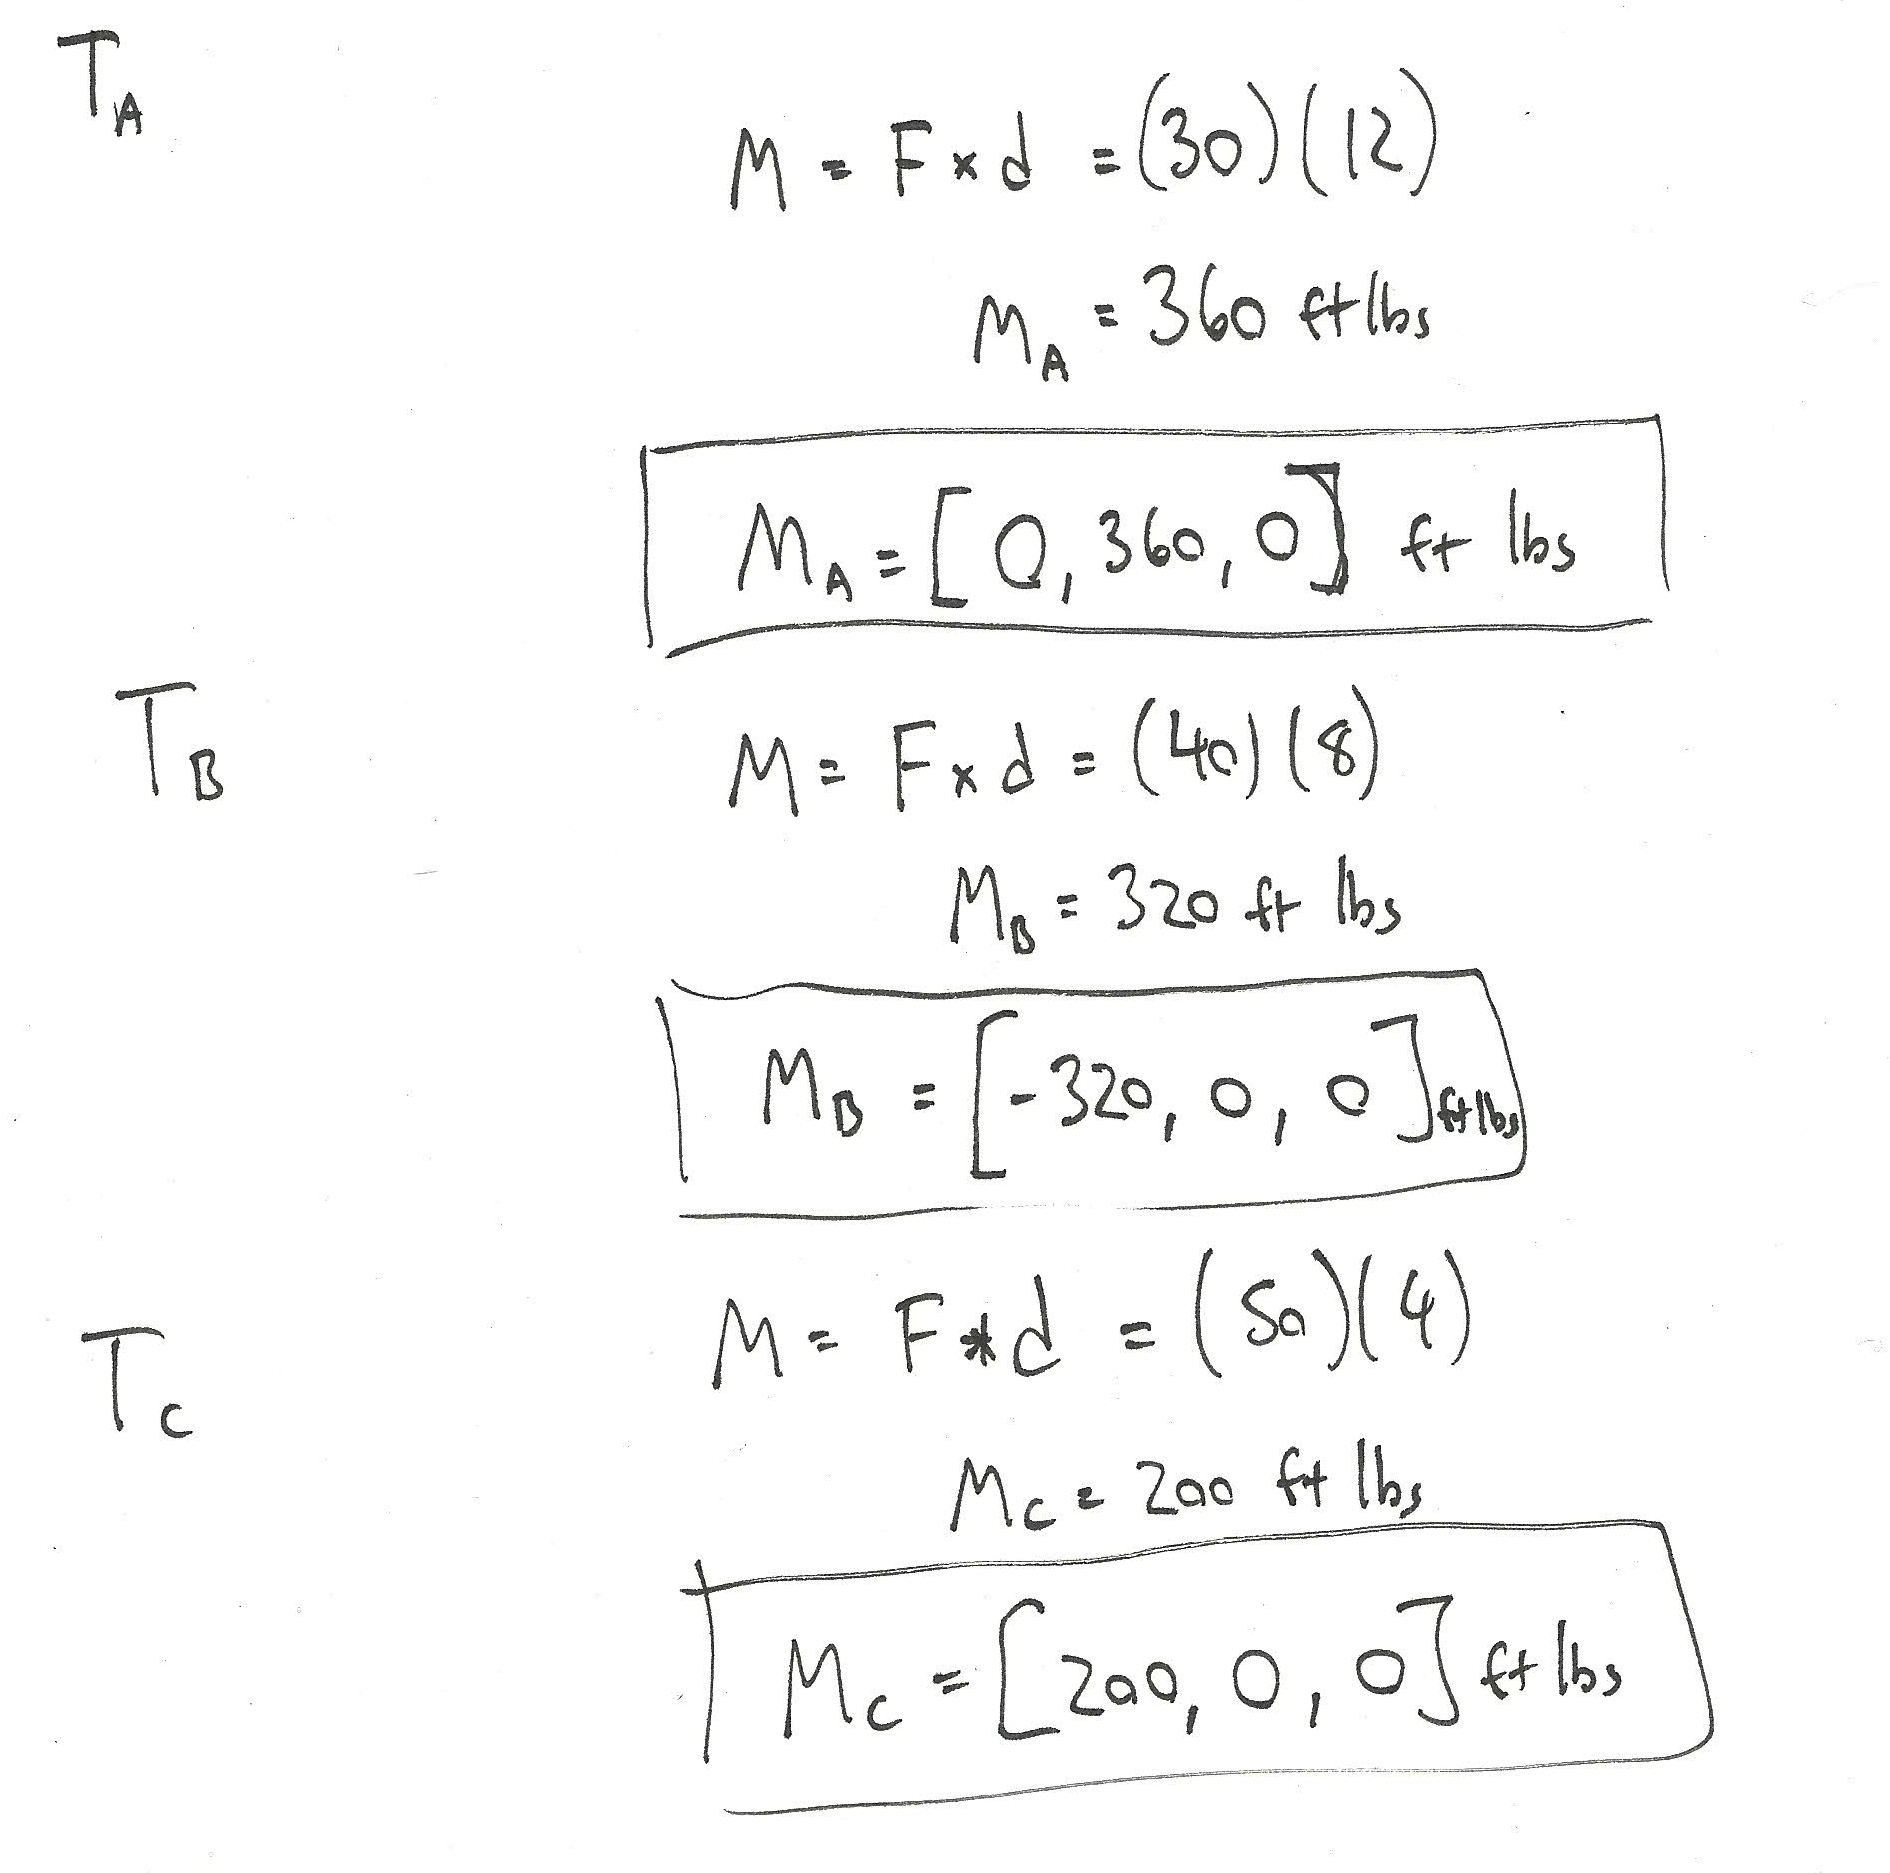 T_A
M = F × d = (30)(12)
M_A = 360 ft lbs
M_A = [0, 360, 0] ft lbs
T_B
M = F × d = (40)(8)
M_B = 320 ft lbs
M_B = [-320, 0, 0] ft lbs
T_C
M = F * d = (50)(4)
M_C = 200 ft lbs
M_C = [200, 0, 0] ft lbs